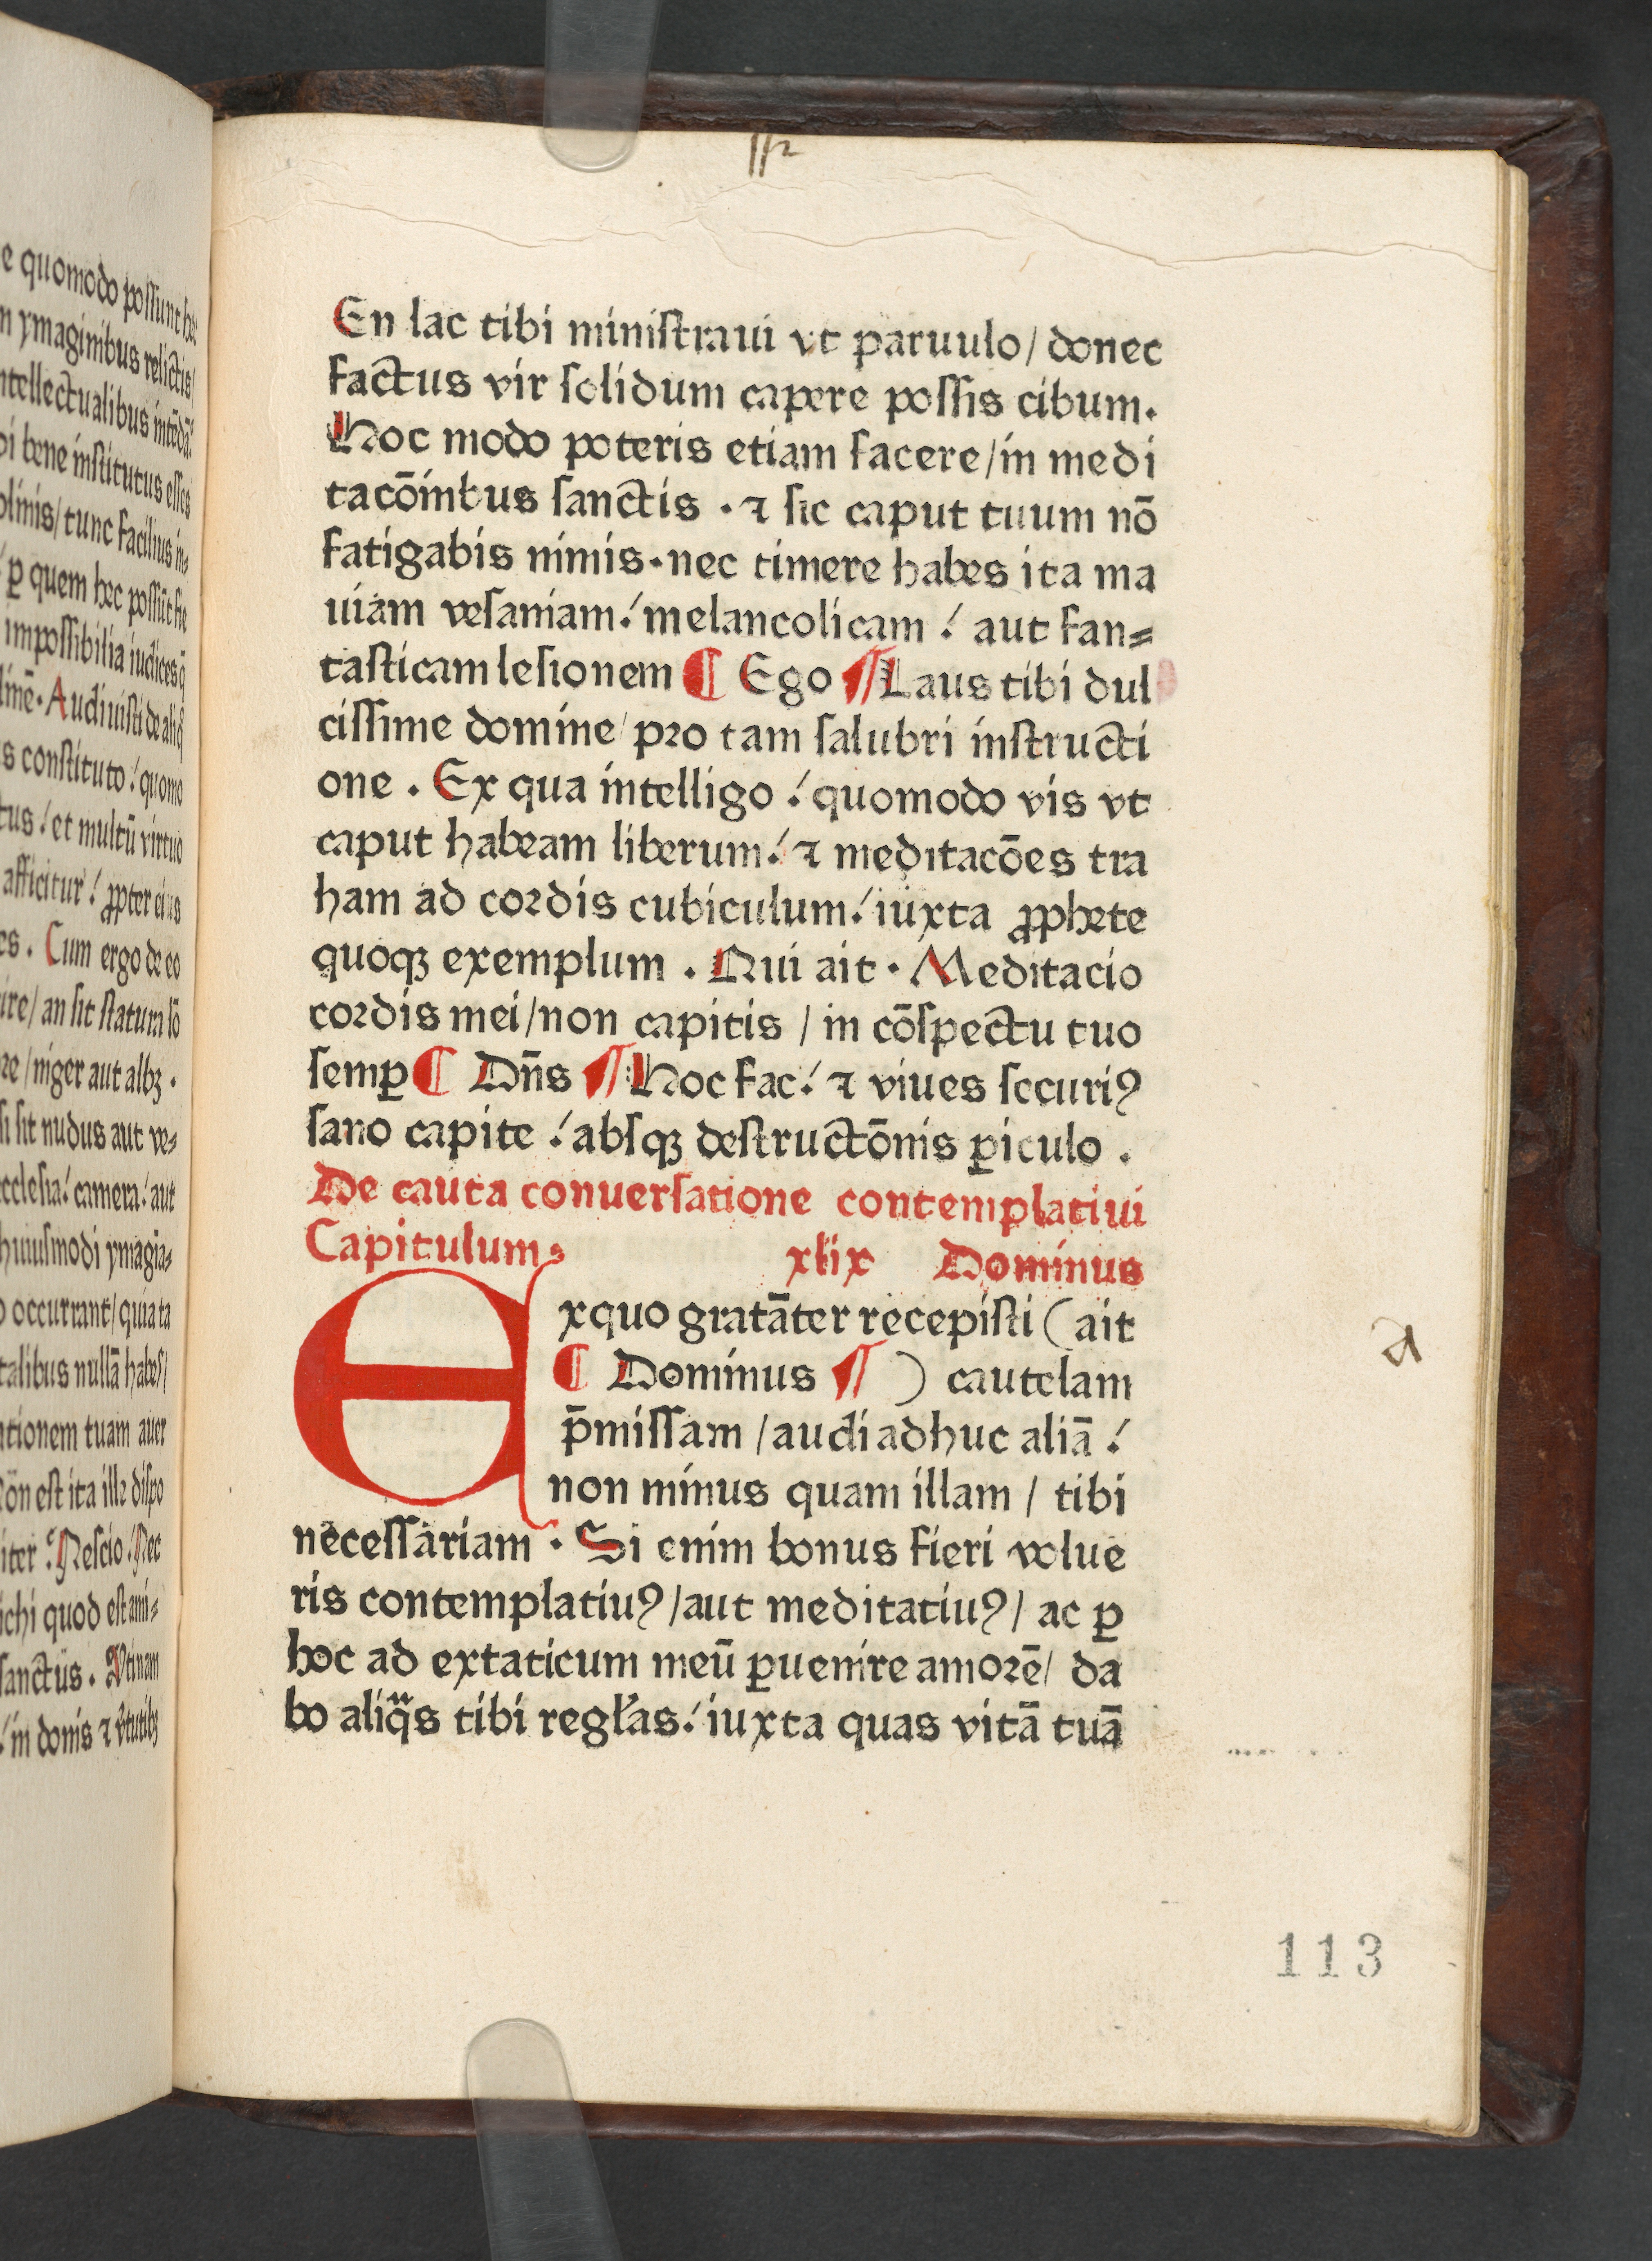 e quomodo possunt hec
n ymaginibus relictis/
ntellectualibus intēdā⸗
bi bene institutus esses
plinis/tunc facilius in⸗
ꝑ quem hec possūt fie
impossibilia iudices ꝙ̄
linē. Audiuisti de aliq̄
s constituto/ quomo
tus/ et multū virtuo
afficitur/ ꝓpter eius
es. Cum ergo de eo
ire/ an sit statura lō
re/niger aut albꝫ.
si sit nudus aut ve⸗
ecclesia/ camera/ aut
huiusmodi ymagīa⸗
o occurrant/ quia ta
talibus nullā habes/
ntionem tuam auer
ōn est ita ille dispo
iter/ Nescio/ Nec
ichi quod est ami⸗
sanctus. Vtinam
/ in donis ⁊ v̄tutibꝫ
En lac tibi ministraui vt paruulo/ donec
factus vir solidum capere possis cibum.
Hoc modo poteris etiam facere/in medi
tacōinbus sanctis . ⁊ sic caput tuum nō
fatigabis nimis.nec timere habes ita ma
uiam vesaniam/ melancolicam / aut fan⸗
tasticam lesionem ¶ Ego ¶ Laus tibi dul
cissime domine/ pro tam salubri instructi
one . Ex qua intelligo / quomodo vis vt
caput habeam liberum/ ⁊ meditacōes tra
ham ad cordis cubiculum/ iuxta ꝓphete
quoqꝫ exemplum . Qui ait . Meditacio
cordis mei/non capitis / in cōspectu tuo
semꝑ ¶ Dn̄s ¶ Hoc fac/ ⁊ viues securiꝰ
sano capite / absqꝫ destructōnis ꝑiculo .
De cauta conuersatione contemplatiui
Capitulum. xlix Dominus
Exquo gratāter recepisti ( ait
¶ Dominus ¶ ) cautelam
p̄missam / audi adhuc aliā /
non minus quam illam / tibi
necessariam . Si enim bonus fieri volue
ris contemplatiuꝰ/aut meditatiuꝰ/ ac ꝑ
hoc ad extaticum meū ꝑuenire amorē/ da
bo aliq̄s tibi regl̓as/ iuxta quas vitā tuā
a
113